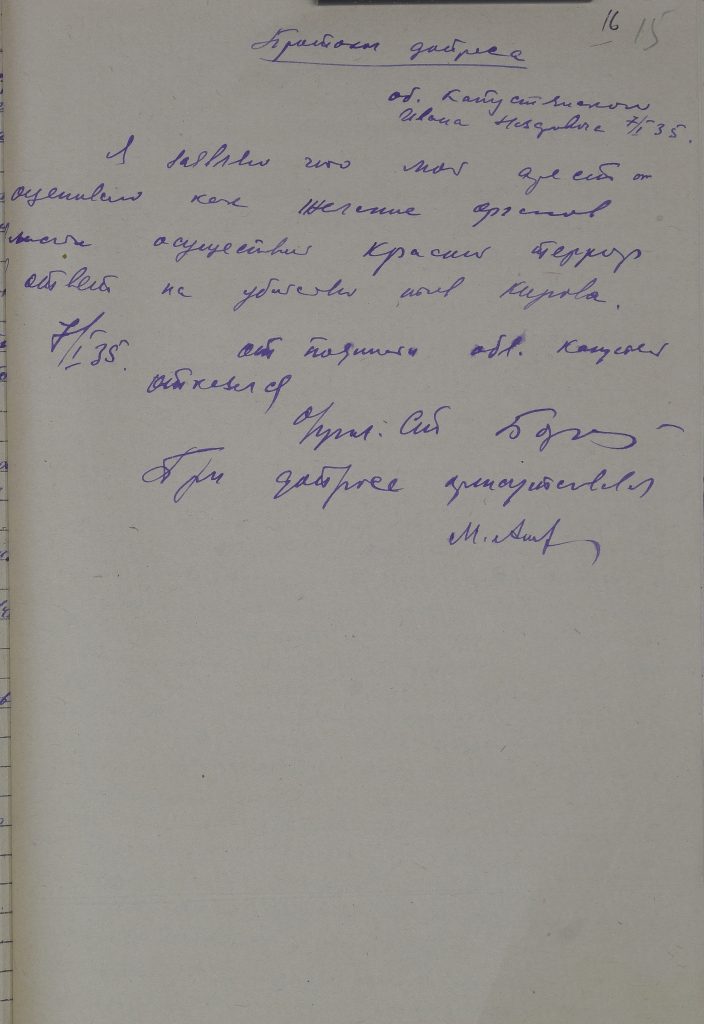 16 15
Протокол допроса
об. Капустянского
Ивана 7/I 35.
Я заявляю что мой арест
оцениваю как желание органов
власти осуществить красный террор
ответ на убийство Кирова.
7/I 35. от подписи обв.
отказался
Опул. СПО
При допросе присутствовал